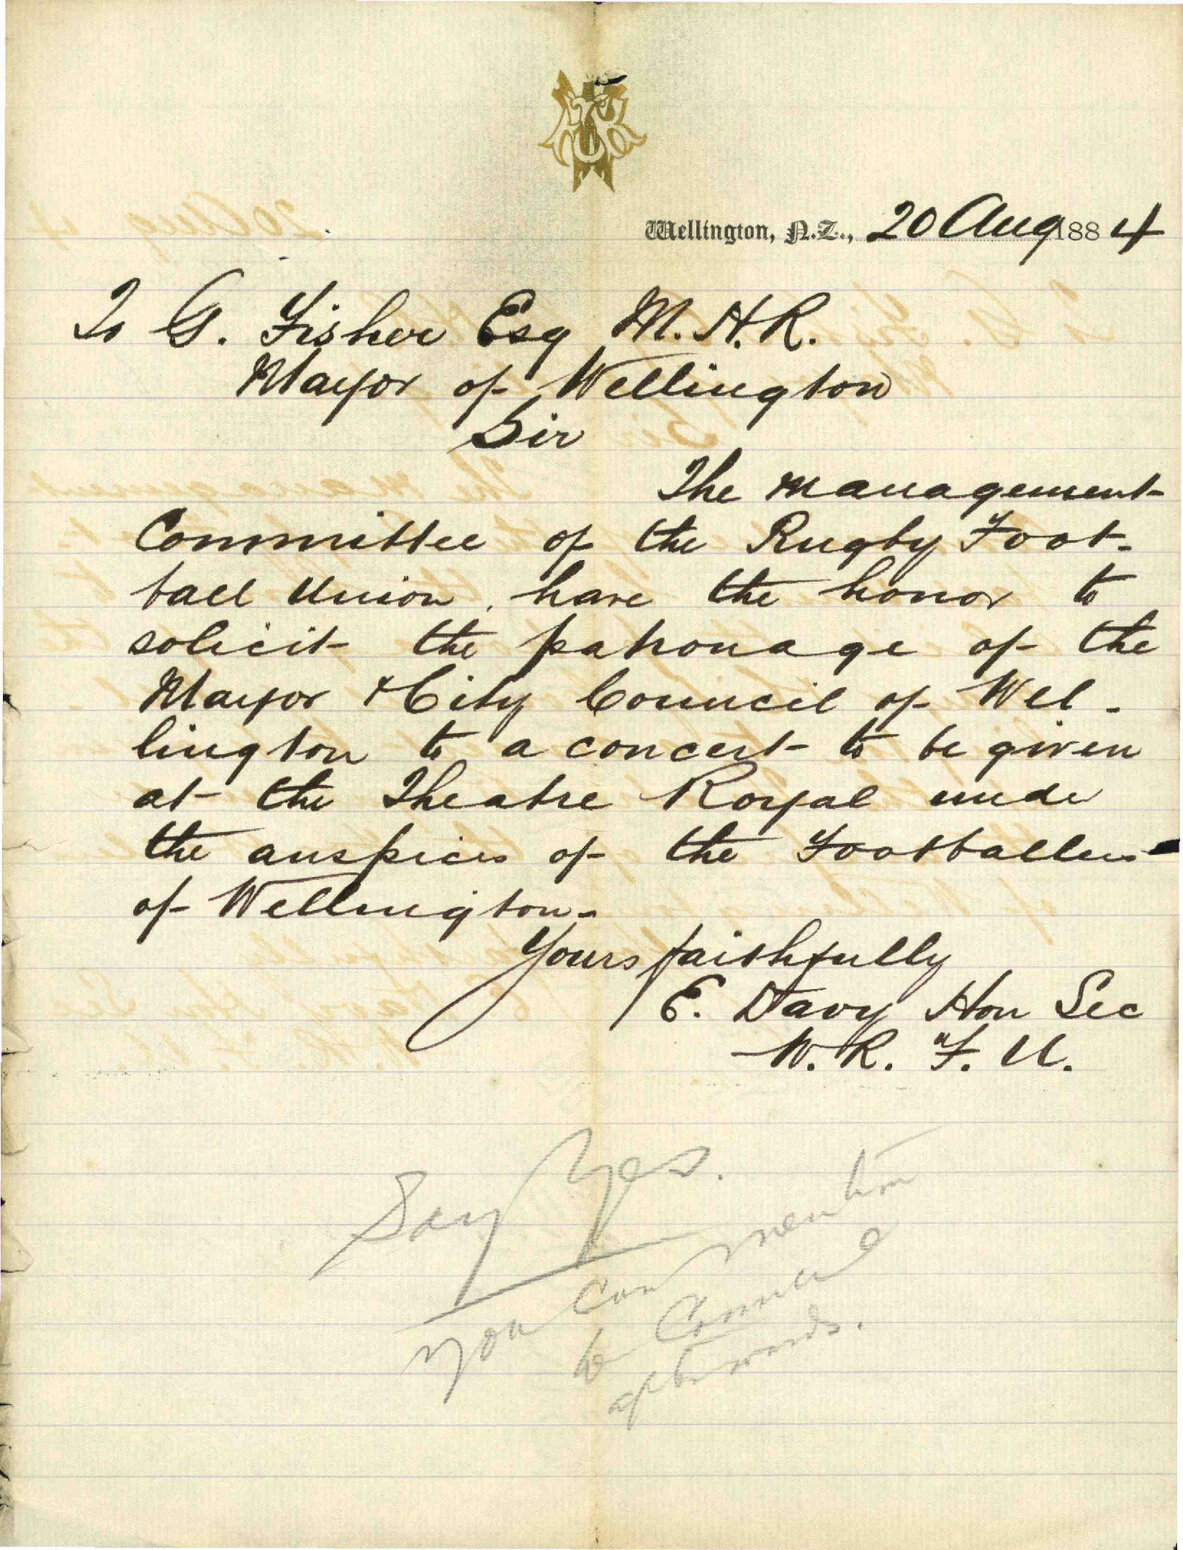 Wellington, N.Z., 20 Aug 1884
To G. Fisher Esq M.H.R.
Mayor of Wellington
Sir
The Management
Committee of the Rugby Foot-
ball Union, have the honor to
solicit the patronage of the
Mayor & City Council of Wel-
lington to a concert to be given
at the Theatre Royal under
the auspices of the Footballers
of Wellington.
Yours faithfully
E. Davy Hon Sec
W. R. F. U.
Say Yes.
you can mention
to Council
afterwards.